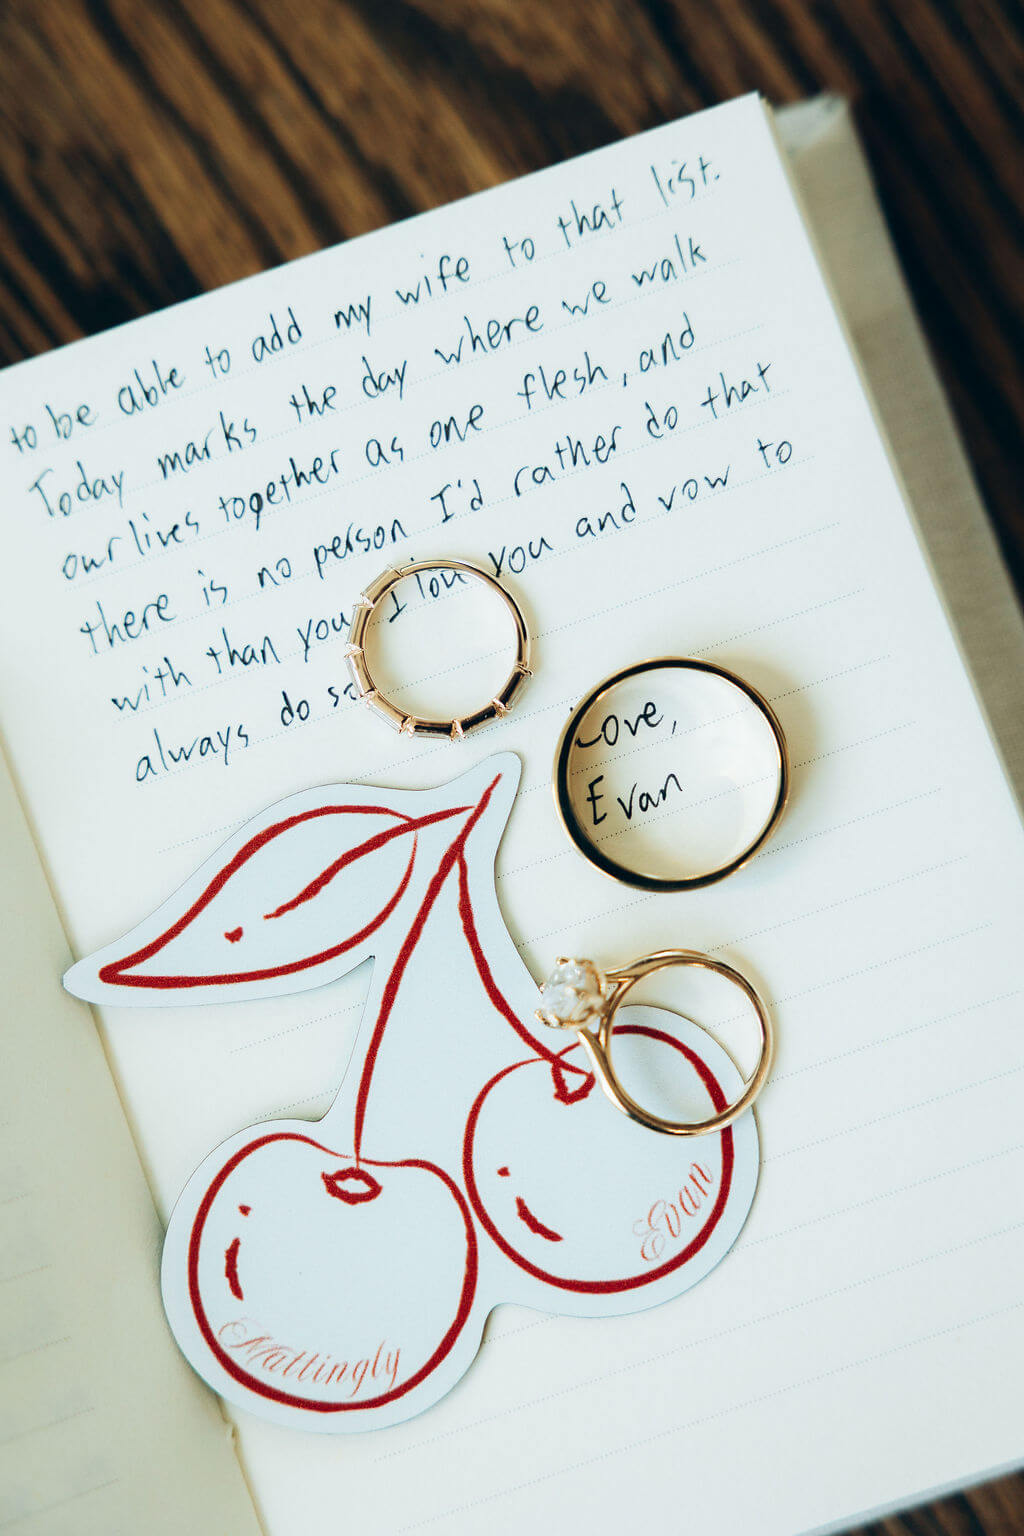 to be able to add my wife to that list.
Today marks the day where we walk
our lives together as one flesh, and
there is no person I'd rather do that
with than you. I love you and vow to
always do so
Love,
Evan
Evan
Mattingly